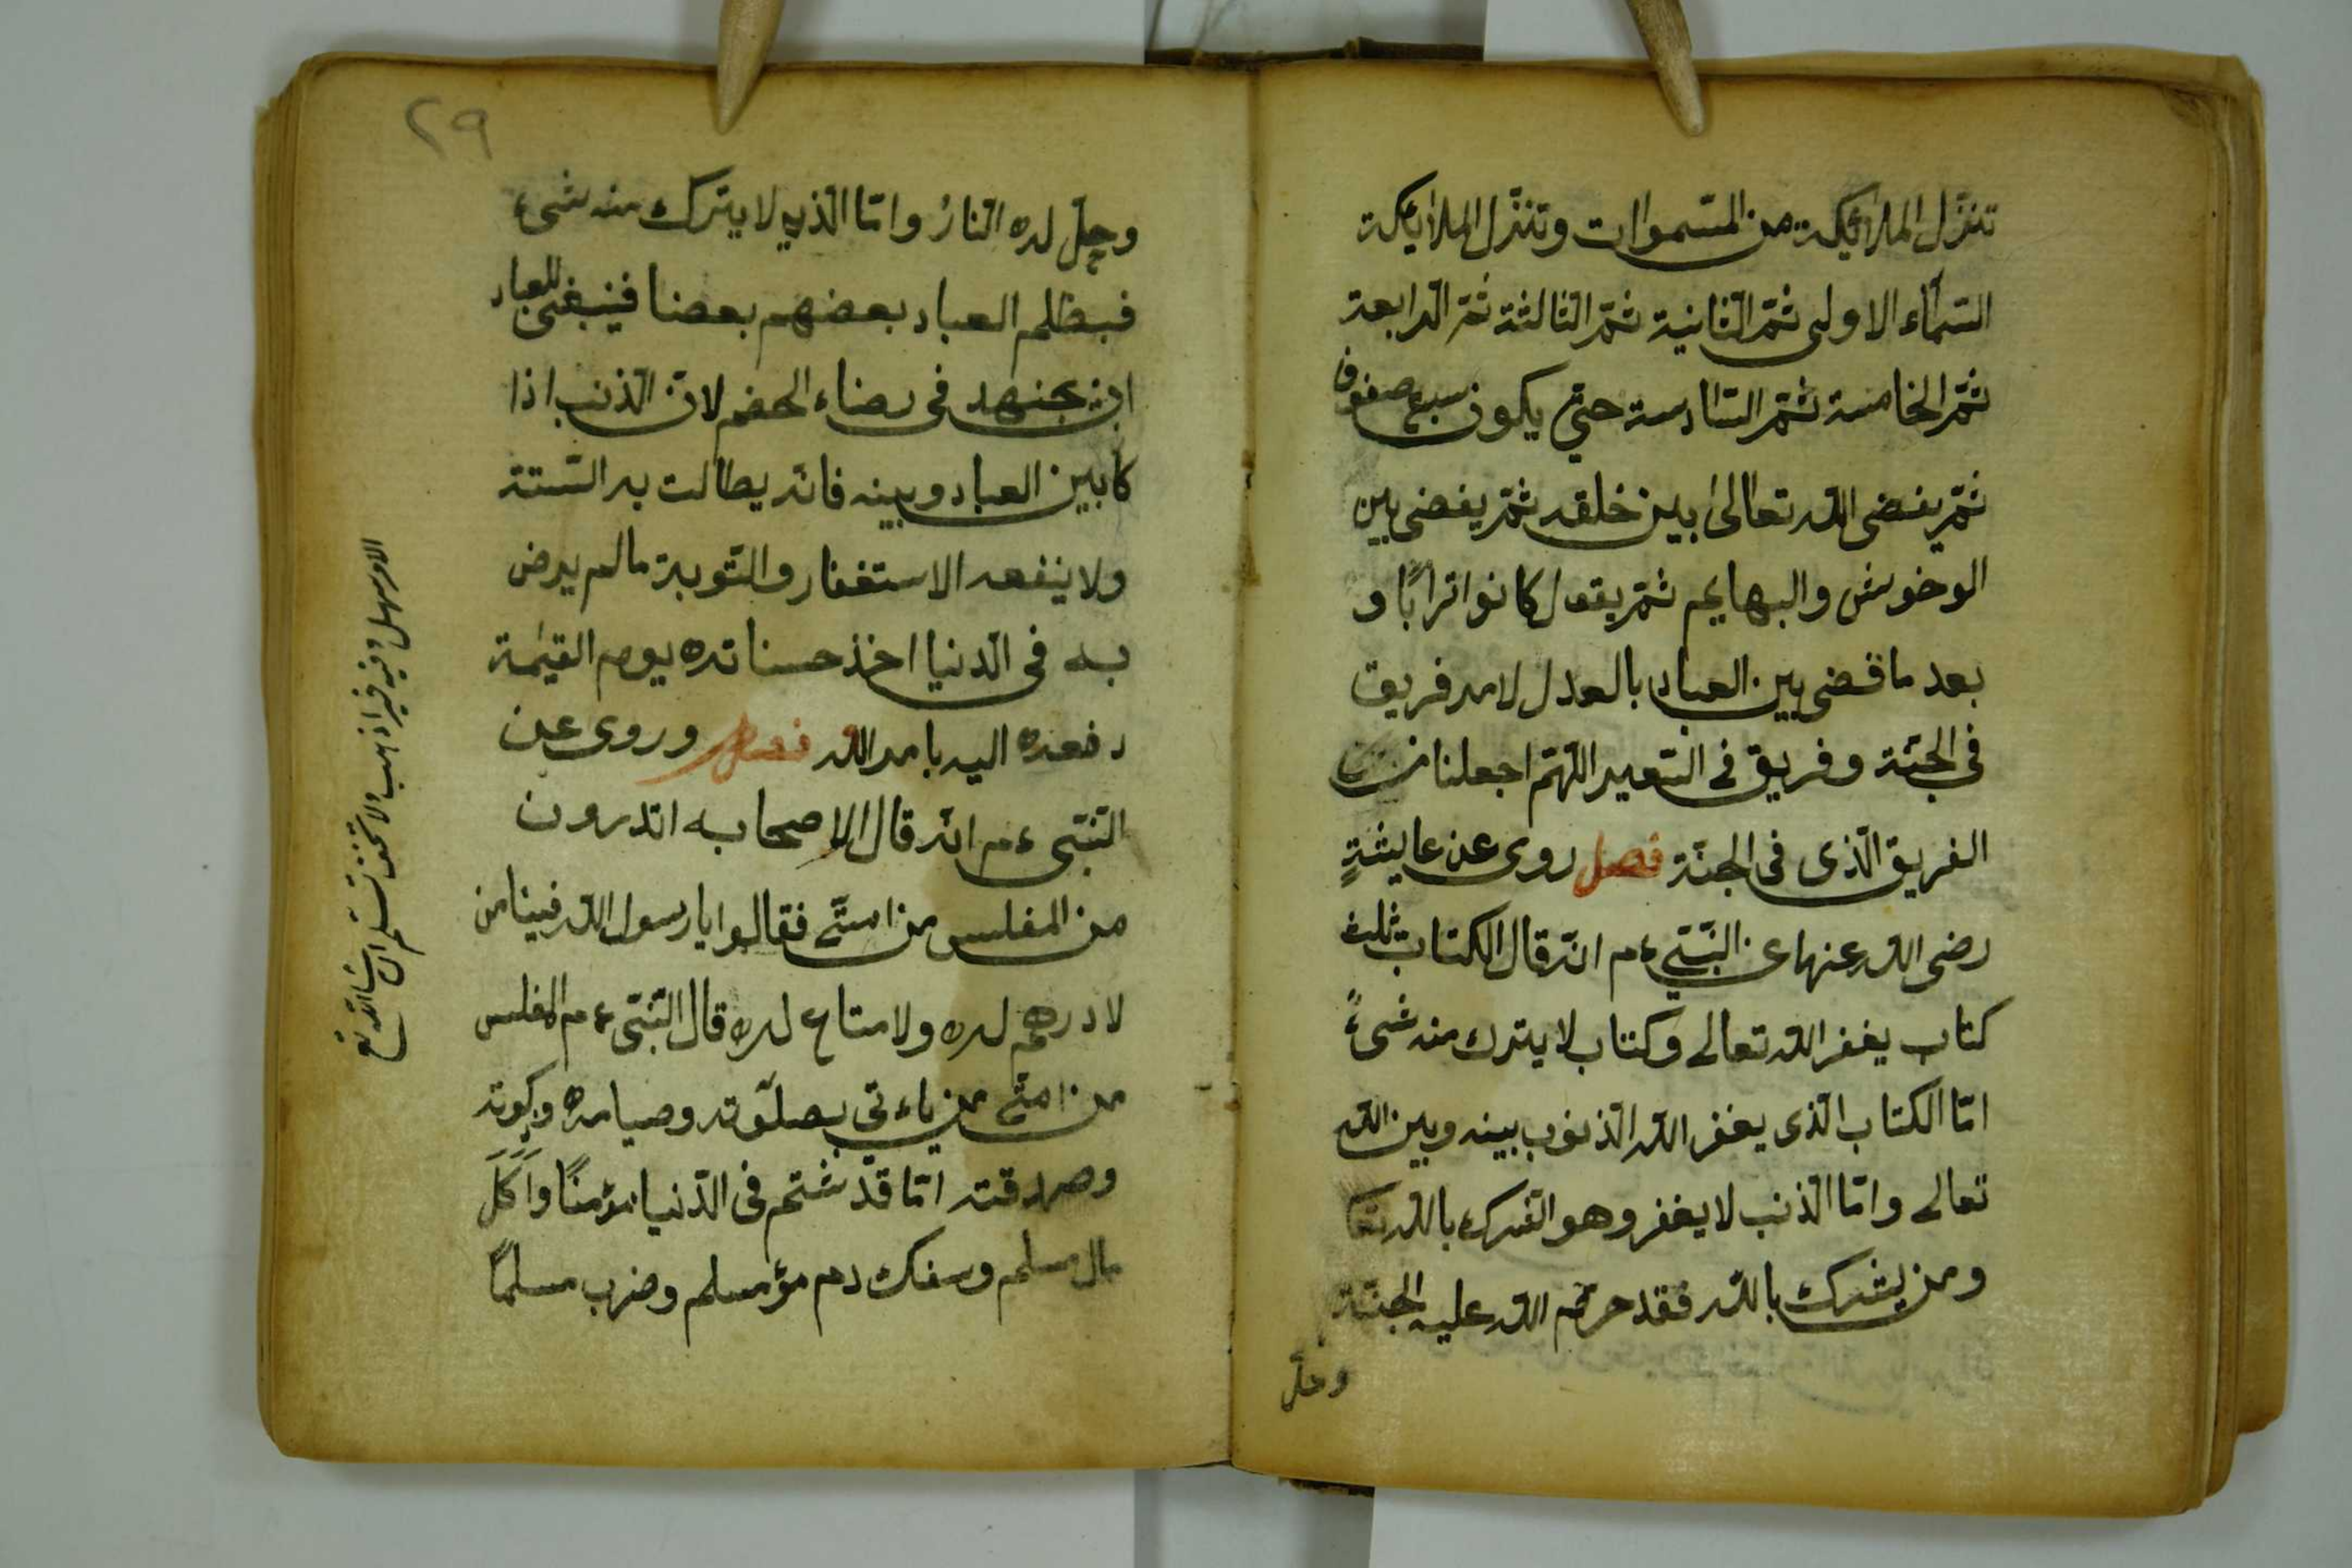 تنزّل الملائكة من السّموات وتنزّل الملائكة
السّمآء الاولى ثمّ الثّانية ثمّ الثّالثة ثمّ الرّابعة
ثمّ الخامسة ثمّ السّادسة حتّى يكون سبع صفوف
ثمّ يفضى اللّه تعالى بين خلقه ثمّ يفضى بين
الوخوش والبهايم ثمّ يقول كانوا ترابًا و
بعد ما قضى بين العباد بالعدل لامر فريق
فى الجنّة وفريق فى السّعير اللّهمّ اجعلنا من
الفريق الّذى فى الجنّة فصل روى عن عايشةٍ
رضى اللّه عنها عن النّبىّ ءم انّه قال الكتاب ثلث
كتاب يغفر اللّه تعالى وكتاب لا يترك منه شىءً
امّا الكتاب الّذى يغفر اللّه الذنوب بينه وبين اللّه
تعالى وامّا الذنب لا يغفر وهو الشرك باللّه تعا
ومن يشرك باللّه فقد حرّم اللّه عليه الجنّة
وحلّ
٢٩
وحلّ له النّارُ وامّا الّذى لا يترك منه شىء
فبظلم العباد بعضهم بعضا فينبغى للعباد
ان يجتهد فى رضاء الخصم لانّ الذنب اذا
كا بين العباد وبينه فانّه يطالت به السّتة
ولا ينفعه الاستغفار والتّوبة مالم يرض
به فى الدّنيا اخذ حسناته يوم القيٰمة
دفعه اليه بامر اللّه فصل وروى عن
النّبى ءم انّه قال لاصحابه اتدرون
من المفلس من امتى فقالوا يا رسول اللّه فينا من
لا درهم له ولا متاع له قال النّبى ءم المفلس
من امتى من ياءتى بصلوته وصيامه وزكوته
وصدقته امّا قد شتم فى الدّنيا مؤمنًا واَكَلَ
مال مسلم وسفك دم مؤمسلم وضرب مسلمًا
الامر سهل وفيه خير اذهب ولا تخف تسلم ان شا اللّه تع